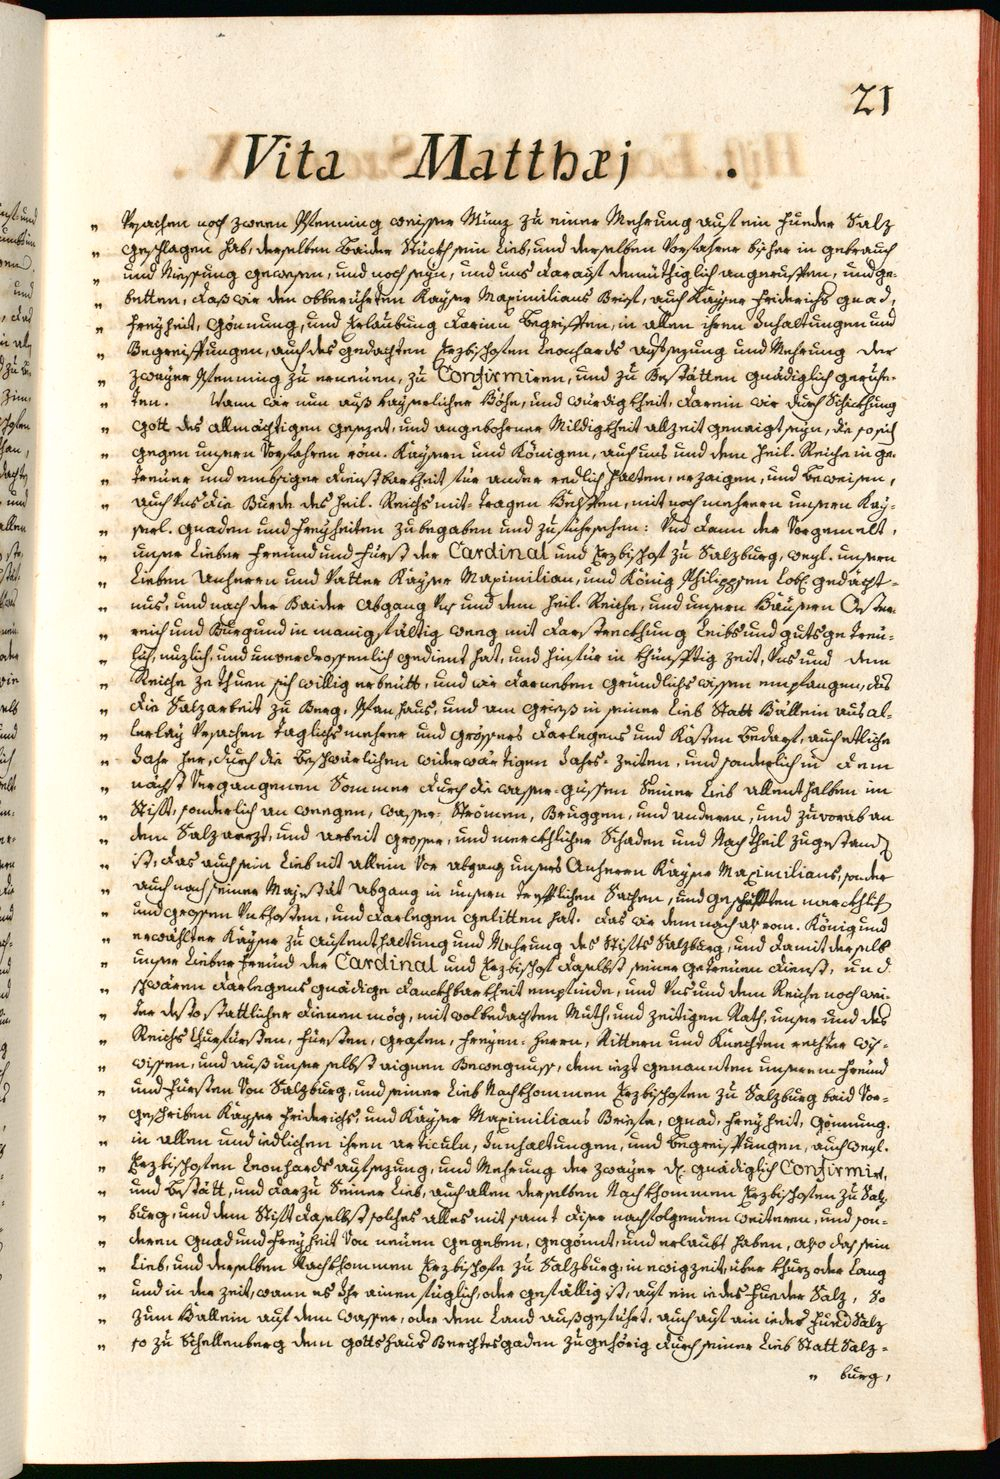 21
Vita Matthæj.
„ Vrsachen noch zween Pfenning weisser Münz zu einer Mehrung auf ein Fueder Salz
„ geschlagen hab, derselben baider Stückh sein Lieb, und derselben Vorfahrer bißher in gebrauch
„ und Niessung gewesen, und noch seyn, und uns darauf demüthiglich angerueffen, und ge-
„ betten, daß wir den obberührten Kayser Maximilians Brief, auch Kayser Friderichs gnad,
„ Freyheit, Gönnung, und Erlaubung darinn begriffen, in allen ihren Inhaltungen und
„ Begreiffungen, auch des gedachten Erzbischofen Leonhards aufsezung und Mehrung der
„ zwayer Pfenning zu erneuen, zu Confirmiren, und zu bestätten gnädiglich geruhe-
„ ten. Wann wir nun auß kayserlicher Höhe, und würdigkheit, darein wir durch Schickhung
„ Gott des allmächtigen gesezet, und angebohrner Mildigkheit allzeit genaigt seyn, die so sich
„ gegen unsern Vorfahren röm. Kaysern und Königen, auch uns und dem Heil. Reiche in ge-
„ treuer und embsiger dienstbarkheit für ander redlich halten, erzaigen, und beweisen,
„ auch Uns die Burde des Heil. Reichs mit-tragen helffen, mit noch mehrern unsern Kay-
„ serl. gnaden und Freyheiten zu begaben und zufürsehen: Und dann der Vorgemelt,
„ unser Lieber Freund und Fürst der Cardinal und Erzbischof zu Salzburg, weyl. unsern
„ Lieben Anherrn und Vatter Kayser Maximilian, und König Philippsen Lobl. gedächt-
„ nus, und nach der Baider Abgang Uns und dem Heil. Reiche, und unsern Häusern Oester-
„ reich und Burgund in manigfältig weeg mit darstreckhung Leibs und guts getreu-
„ lich, nuzlich, und unverdrossenlich gedient hat, und hinfür in khünfftig zeit, Uns und dem
„ Reiche ze thuen sich willig erbeütt, und wir darneben gründlichs wissen empfangen, das
„ die Salzarbeit zu Berg, Pfanhaus, und am Grieß in seiner Lieb Statt Hällein aus al-
„ lerley Vrsachen täglichs mehrer und grössers darlegens und Kosten bedarf, auch etliche
„ Jahr her, durch die beschwärlichen widerwärtigen Jahrs-zeiten, und sonderlich in dem
„ nächst Vergangenen Sommer durch die wasser-güssen Seiner Lieb allenthalben im
„ Stifft, sonderlich an weegen, wasser-Strömen, Bruggen, und andern, und zuvorab an
„ dem Salzarzt, und arbeit grosser, und merckhlicher Schaden und Nachtheil zugestanden
„ ist, das auch sein Lieb nit allein Vor abgang unsers Anherrn Kayser Maximilians, sonder
„ auch nach seiner Majestät abgang in unsern trefflichen Sachen, und geschäfften merckhlich
„ und grossen Unkhosten, und darlegen gelitten hat. das wir demnach als röm. König und
„ erwählter Kayser zu aufenthaltung und Mehrung des Stiffts Salzburg, und damit derselb
„ unser Lieber Freund der Cardinal und Erzbischof daselbst seiner getreuen dienst, und
„ schwären darlegens gnädige danckhbarkheit empfinde, und Uns und dem Reiche noch wei-
„ ter desto stattlicher dienen mög, mit wolbedachten Muth, und zeitigen Rath, unser und des
„ Reichs Churfürsten, Fürsten, Grafen, Freyen-Herrn, Rittern und Knechten rechter wis-
„ wissen, und auß unser selbst aignen Bewegnuss, dem iezt genannten unserem Freünd
„ und Fürsten Von Salzburg, und seiner Lieb Nachkhommen Erzbischofen zu Salzburg baid Vor-
„ geschriben Kayser Friderichs, und Kayser Maximilians Briefe, gnad, Freyheit, Gönnung,
„ in allen und iedlichen ihren Articuln, Innhaltungen, und Begreiffungen, auch weyl.
„ Erzbischofen Leonhards aufsezung, und Mehrung der zwayer ₰. gnädiglich Confirmirt,
„ und bestätt, und darzu Seiner Lieb, auch allen derselben Nachkhommen Erzbischofen zu Salz-
„ burg, und dem Stifft daselbst solches alles mit samt diser nachfolgenden weiteren, und son-
„ deren gnad und Freyheit Von neuen gegeben, gegönnt, und erlaubt haben, also das sein
„ Lieb, und derselben Nachkhommen Erzbischofe zu Salzburg, in ewig zeit, über khurz oder Lang
„ und in der zeit, wann es Ihr ainen füglich, oder gefällig ist, auf ein iedes Fueder Salz, so
„ zum Hällein auf dem wasser, oder dem Land außgeführt, auch auf ain ieder Fued Salz
„ so zu Schellenberg dem Gottshaus Berchtesgaden zugehörig durch seiner Lieb Statt Salz-
„ burg,